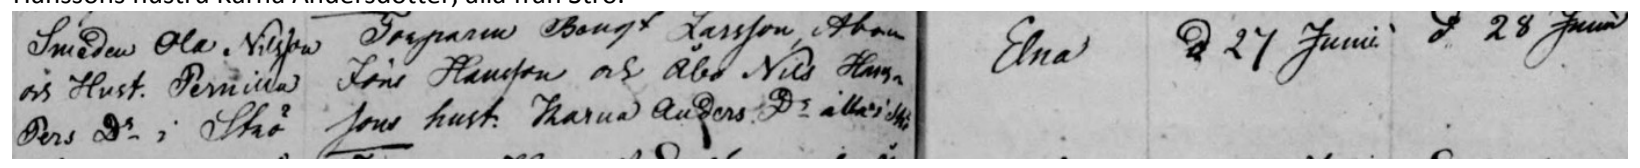 Hanssons hustru Karna Andersdotter, alla från Strö.
Smeden Ola Nilsson
och Hust. Pernilla
Pers Dr i Strö
Bengt Larsson, Åbon
Jöns Hansson och Åbo Nils Hans-
sons hust. Karna Anders Dr alla i Strö
Elna
d 27 Junii
d 28 Junii